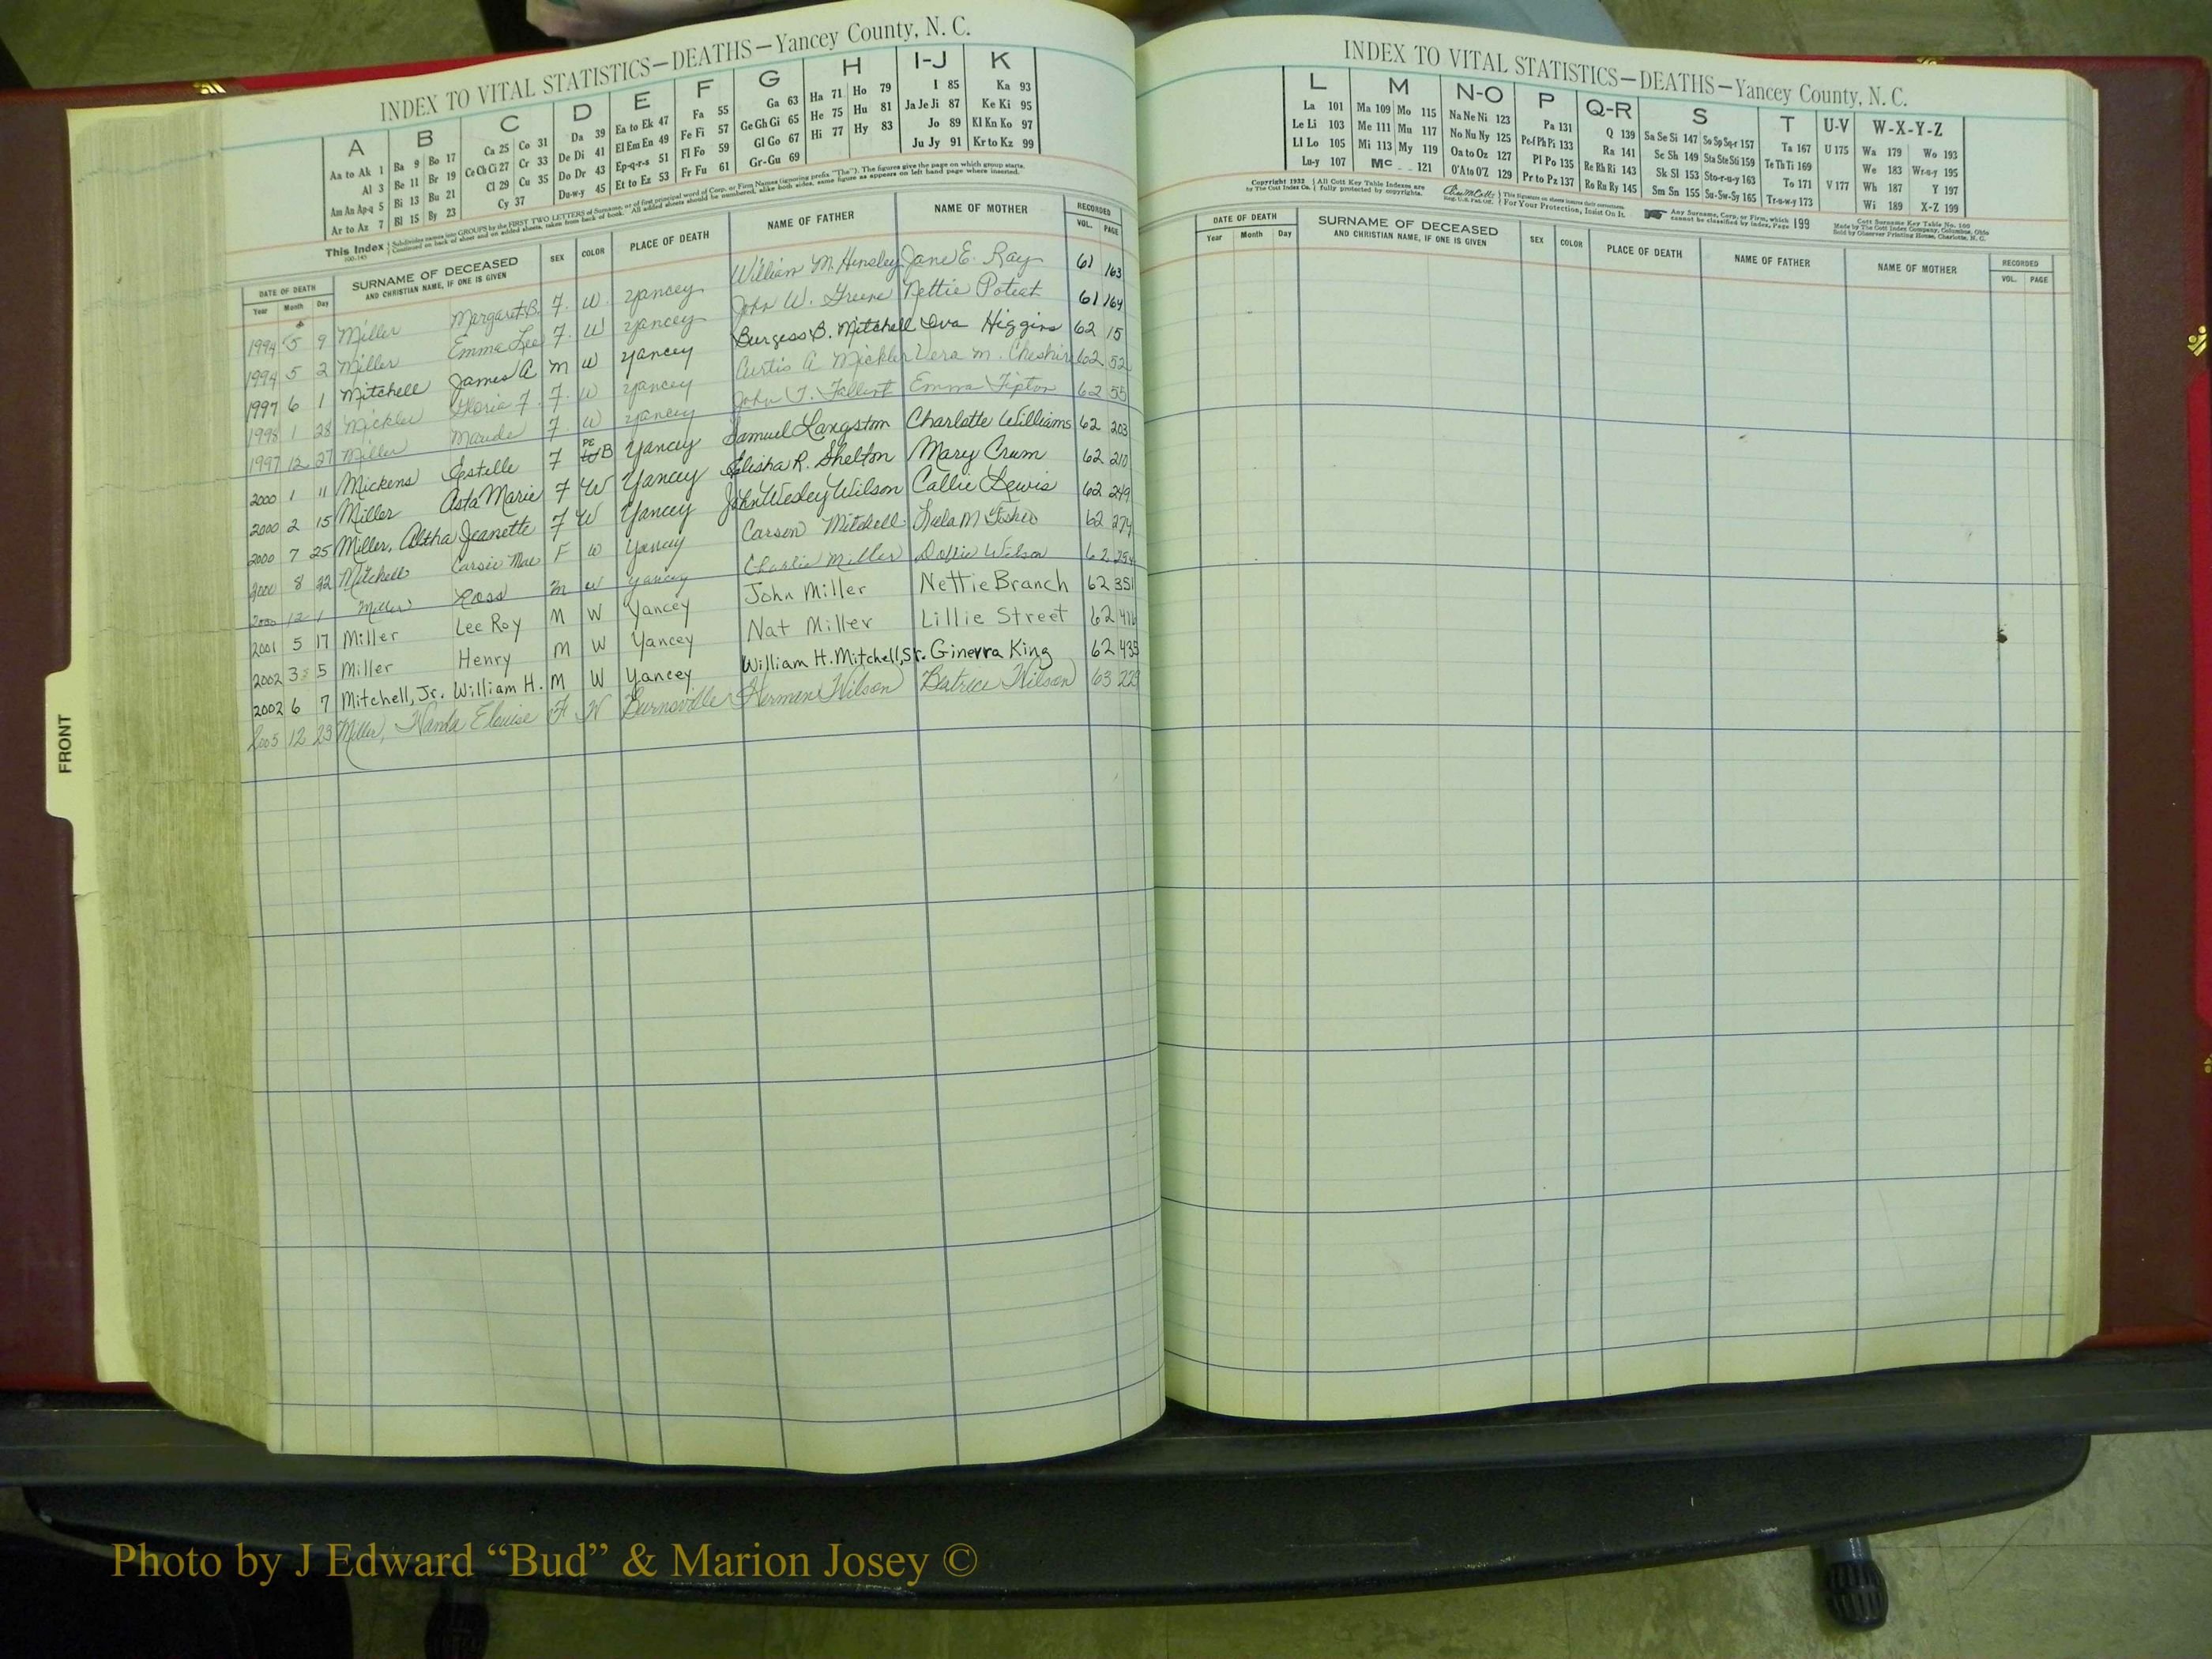 INDEX TO VITAL STATISTICS—DEATHS—Yancey County, N. C.
A B C D E F G H I-J K
Aa to Ak 1 Ba 9 Bo 17 Ca 25 Co 31 Da 39 Ea to Ek 47 Fa 55 Ga 63 Ha 71 Ho 79 I 85 Ka 93
Al 3 Be 11 Br 19 Ce Ch Ci 27 Cr 33 De Di 41 El Em En 49 Fe Fi 57 Ge Gh Gi 65 He 75 Hu 81 Ja Je Ji 87 Ke Ki 95
Am An Ap-q 5 Bi 13 Bu 21 Cl 29 Cu 35 Do Dr 43 Ep-q-r-s 51 Fl Fo 59 Gl Go 67 Hi 77 Hy 83 Jo 89 Kl Kn Ko 97
Ar to Az 7 Bl 15 By 23 Cy 37 Du-w-y 45 Et to Ez 53 Fr Fu 61 Gr-Gu 69 Ju Jy 91 Kr to Kz 99
This Index Subdivides names into GROUPS by the FIRST TWO LETTERS of Surname, or of first principal word of Corp. or Firm Names (ignoring prefix "The"). The figures give the page on which group starts.
Continued on back of sheet and on added sheets, taken from back of book. All added sheets should be numbered, alike both sides, same figure as appears on left hand page where inserted.
DATE OF DEATH SURNAME OF DECEASED SEX COLOR PLACE OF DEATH NAME OF FATHER NAME OF MOTHER RECORDED
Year Month Day AND CHRISTIAN NAME, IF ONE IS GIVEN VOL. PAGE
1994 5 9 Miller Margaret B. F. W. Yancey William M. Hensley Jane E. Ray 61 163
1994 5 2 Miller Emma Lee F. W Yancey John W. Greene Nettie Poteat 61 164
1997 6 1 Mitchell James A M W Yancey Burgess B. Mitchell Iva Higgins 62 15
1998 1 28 Mickler Gloria F. F. W Yancey Curtis A Mickler Vera M. Cheshire 62 52
1997 12 27 Miller Maude F W Yancey John T. Emma Tipton 62 55
2000 1 11 Mickens Estelle F B Yancey Samuel Langston Charlotte Williams 62 203
2000 2 15 Miller Asta Marie F W Yancey Elisha R. Shelton Mary Crum 62 210
2000 7 25 Miller, Altha Jeanette F W Yancey John Wesley Wilson Callie Lewis 62 249
2000 8 22 Mitchell Carsie Mae F W Yancey Carson Mitchell Lula M 62 274
2000 12 1 Miller Ross M W Yancey Charlie Miller Dollie Wilson 62
2001 5 17 Miller Lee Roy M W Yancey John Miller Nettie Branch 62 351
2002 3 5 Miller Henry M W Yancey Nat Miller Lillie Street 62 416
2002 6 7 Mitchell, Jr. William H. M W Yancey William H. Mitchell, Sr. Ginevra King 62 435
2005 12 23 Miller, Wanda Elouise F W Burnsville Herman Wilson Beatrice Wilson 63
FRONT
INDEX TO VITAL STATISTICS—DEATHS—Yancey County, N. C.
L M N-O P Q-R S T U-V W-X-Y-Z
La 101 Ma 109 Mo 115 Na Ne Ni 123 Pa 131 Q 139 Sa Se Si 147 So Sp Sq-r 157 Ta 167 U 175 Wa 179 Wo 193
Le Li 103 Me 111 Mu 117 No Nu Ny 125 Pe-f Ph Pi 133 Ra 141 Sc Sh 149 Sta Ste Sti 159 Te Th Ti 169 We 183 Wr-u-y 195
Ll Lo 105 Mi 113 My 119 Oa to Oz 127 Pl Po 135 Re Rh Ri 143 Sk Sl 153 Sto-r-u-y 163 To 171 V 177 Wh 187 Y 197
Lu-y 107 Mc 121 O'A to O'Z 129 Pr to Pz 137 Ro Ru Ry 145 Sm Sn 155 Su-Sw-Sy 165 Tr-u-w-y 173 Wi 189 X-Z 199
Copyright 1932 by The Cott Index Co. All Cott Key Table Indexes are fully protected by copyrights. This signature on sheets insures their correctness. For Your Protection, Insist On It. Any Surname, Corp. or Firm, which cannot be classified by index, Page 199 Cott Surname Key Table No. 100
Made by The Cott Index Company, Columbus, Ohio
Sold by Observer Printing House, Charlotte, N. C.
DATE OF DEATH SURNAME OF DECEASED SEX COLOR PLACE OF DEATH NAME OF FATHER NAME OF MOTHER RECORDED
Year Month Day AND CHRISTIAN NAME, IF ONE IS GIVEN VOL. PAGE
Photo by J Edward “Bud” & Marion Josey ©